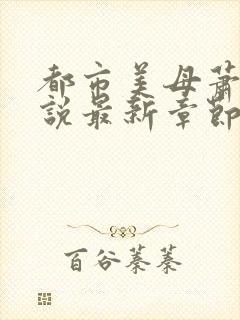 都市美母萧
说最新章节
百谷蓁蓁